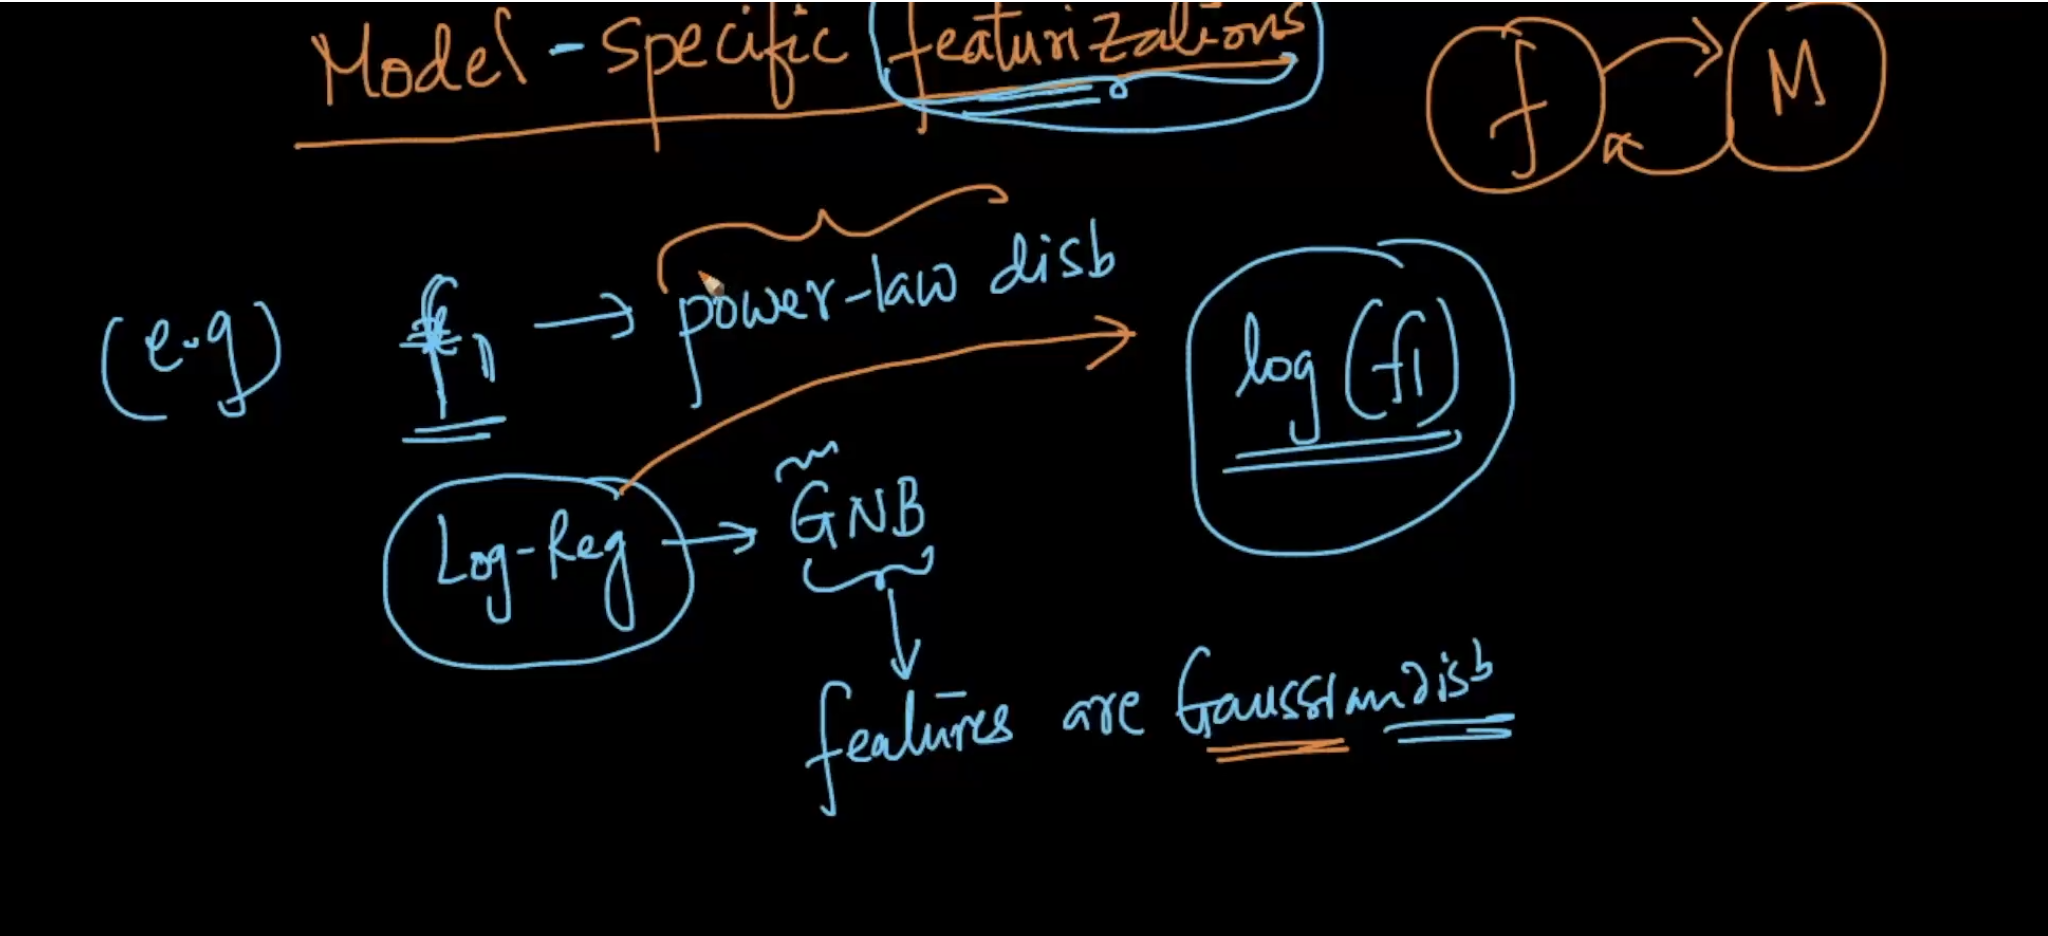 Model-specific featurizations
f M
(e.g) f1 → power-law disb
log (f1)
Log-Reg → GNB
features are Gaussian disb